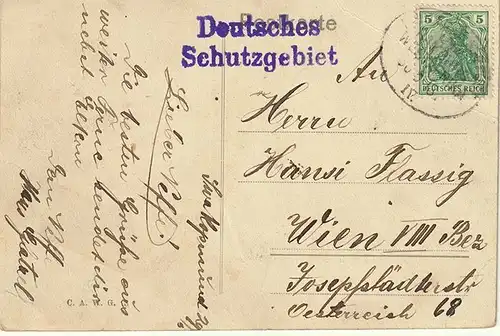 Postkarte
Deutsches
Schutzgebiet
5 5
DEUTSCHES REICH
An
Herrn
Hansi Flassig
Wien VIII Bez
Josefstädterstr
Oesterreich 68
Swakopmund
Lieber Neffe!
Die besten Grüße aus
weiter Ferne sendet dir
Dein
C. A. W. G.